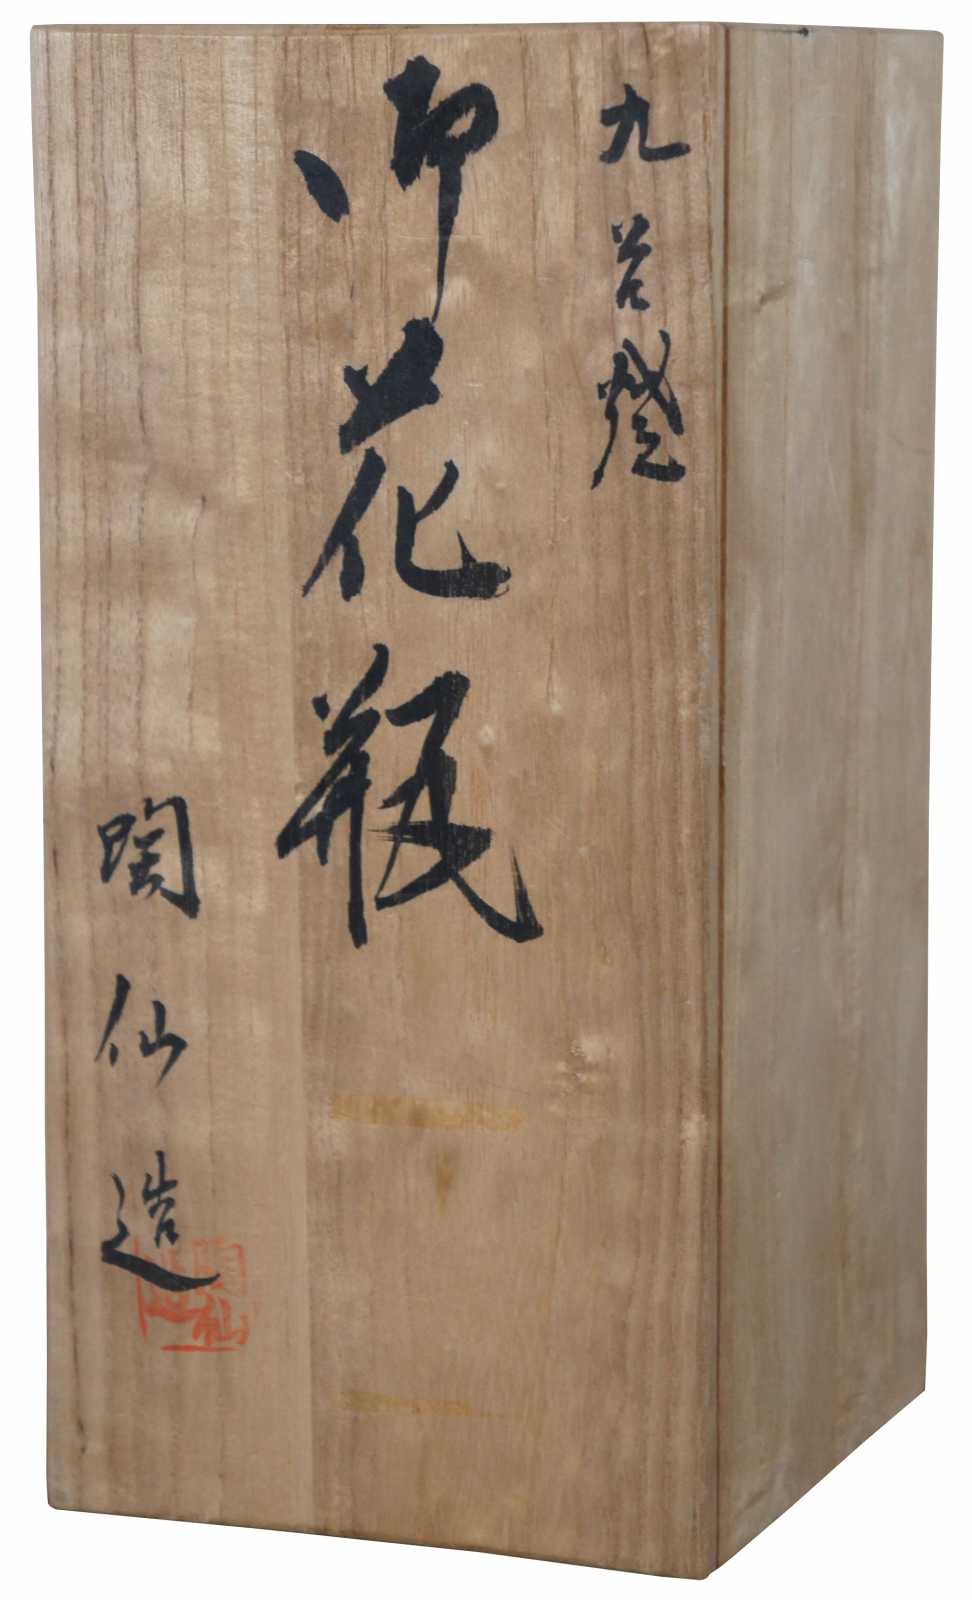 九谷燒
御花瓶
陶仙造
陶仙